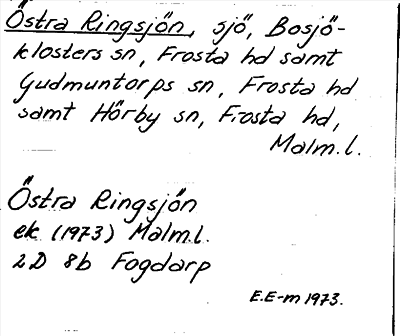 Östra Ringsjön, sjö, Bosjö-
klosters sn, Frosta hd samt
Gudmuntorps sn, Frosta hd
samt Hörby sn, Frosta hd,
Malm.l.
Östra Ringsjön
ek (1973) Malm.l.
2D 8b Fogdarp
E.E-m 1973.